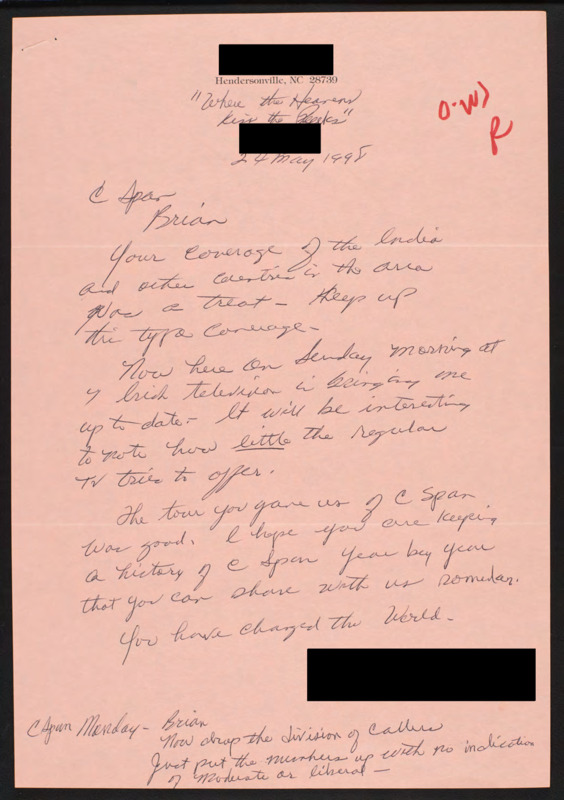 Hendersonville, NC 28739
"Where the Heavens
Kiss the Peaks"
24 May 1998
O-W)
R
C Span
Brian
Your coverage of the India
and other countries in the area
was a treat - Keep up
this type coverage -
Now here on Sunday morning at
7 Irish television is bringing me
up to date - It will be interesting
to note how little the regular
TV tries to offer.
The tour you gave us of C Span
was good. I hope you are keeping
a history of C Span year by year
that you can share with us someday.
You have changed the World -
C Span Monday - Brian
Now drop the division of callers
Just put the numbers up with no indication
of moderate or liberal -